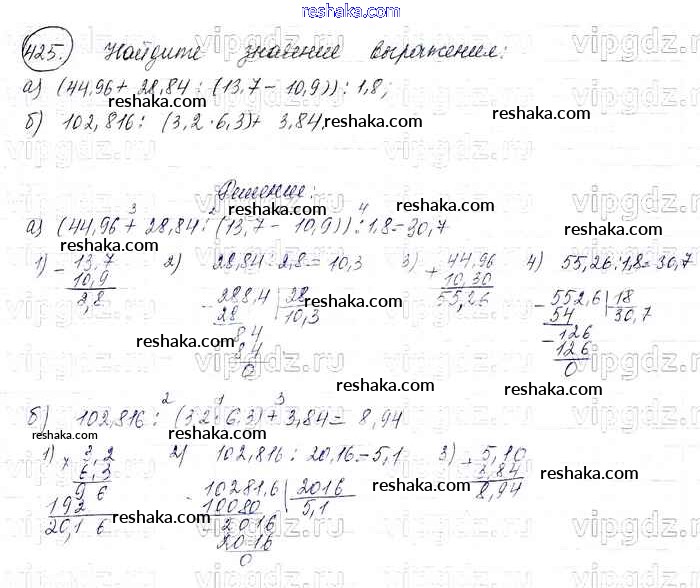 reshaka.com
425. Найдите значение выражения:
а) (44,96 + 28,84 : (13,7 - 10,9)) : 1,8;
б) 102,816 : (3,2 · 6,3) + 3,84.
Решение:
3 2 1 4
а) (44,96 + 28,84 : (13,7 - 10,9)) : 1,8 = 30,7
1) - 13,7 2) 28,84 : 2,8 = 10,3 3) + 44,96 4) 55,26 : 1,8 = 30,7
10,9 - 288,4 | 28 10,30 - 552,6 | 18
2,8 28 10,3 55,26 54 30,7
84 - 126
84 126
0 0
2 1 3
б) 102,816 : (3,2 · 6,3) + 3,84 = 8,94
1) × 3,2 2) 102,816 : 20,16 = 5,1 3) + 5,10
6,3 - 10281,6 | 2016 3,84
96 10080 5,1 8,94
192 - 2016
20,16 2016
0
reshaka.com
vipgdz.ru